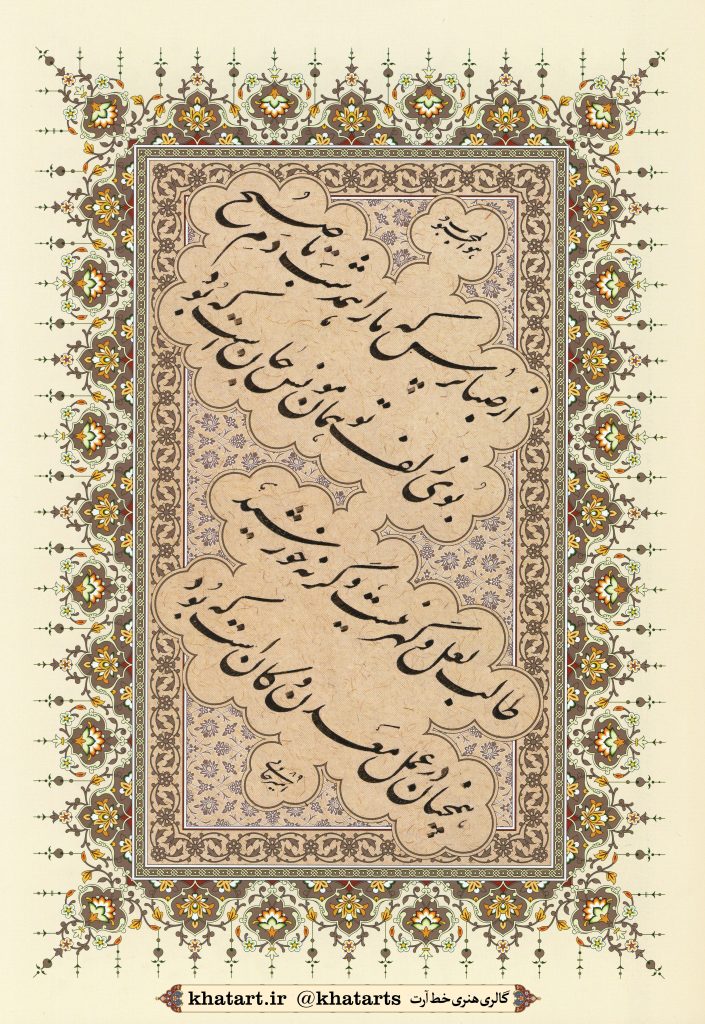 هو المحبوب
از صبا پرس که ما را همه شب تا دم صبح
بوی زلف تو همان مونس جان است که بود
طالب لعل و گهر نیست وگرنه خورشید
همچنان در عمل معدن و کان است که بود
گالری هنری خط آرت @khatarts khatart.ir